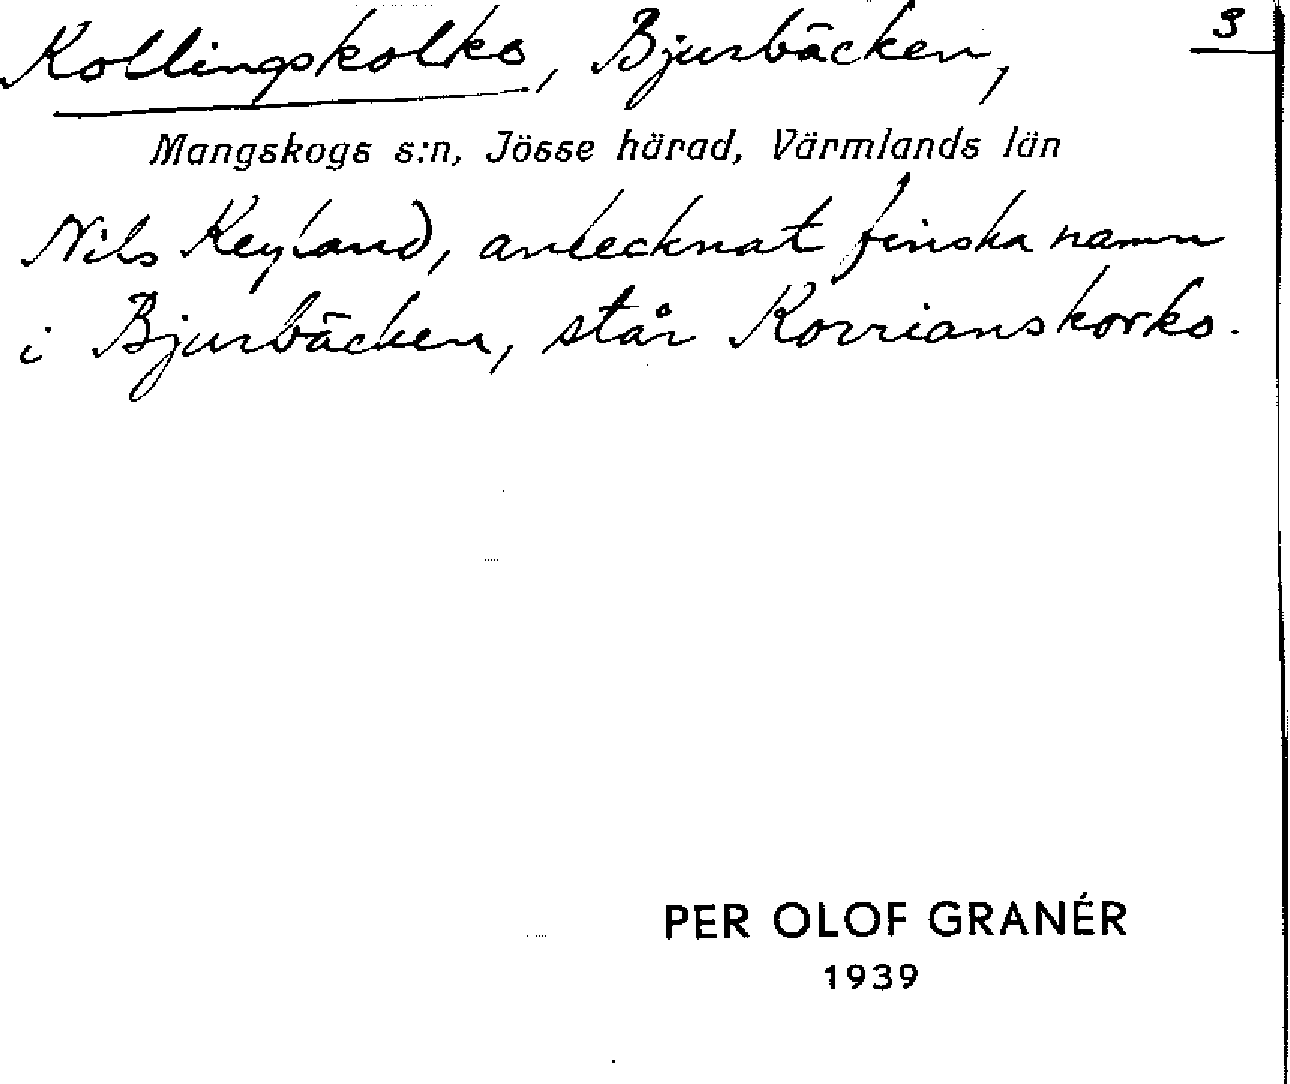 Kollingskolko, Bjurbäcken, 3
Mangskogs s:n, Jösse härad, Värmlands län
Nils Keyland, antecknat finska namn
i Bjurbäcken, står Korrianskorko.
PER OLOF GRANÉR
1939